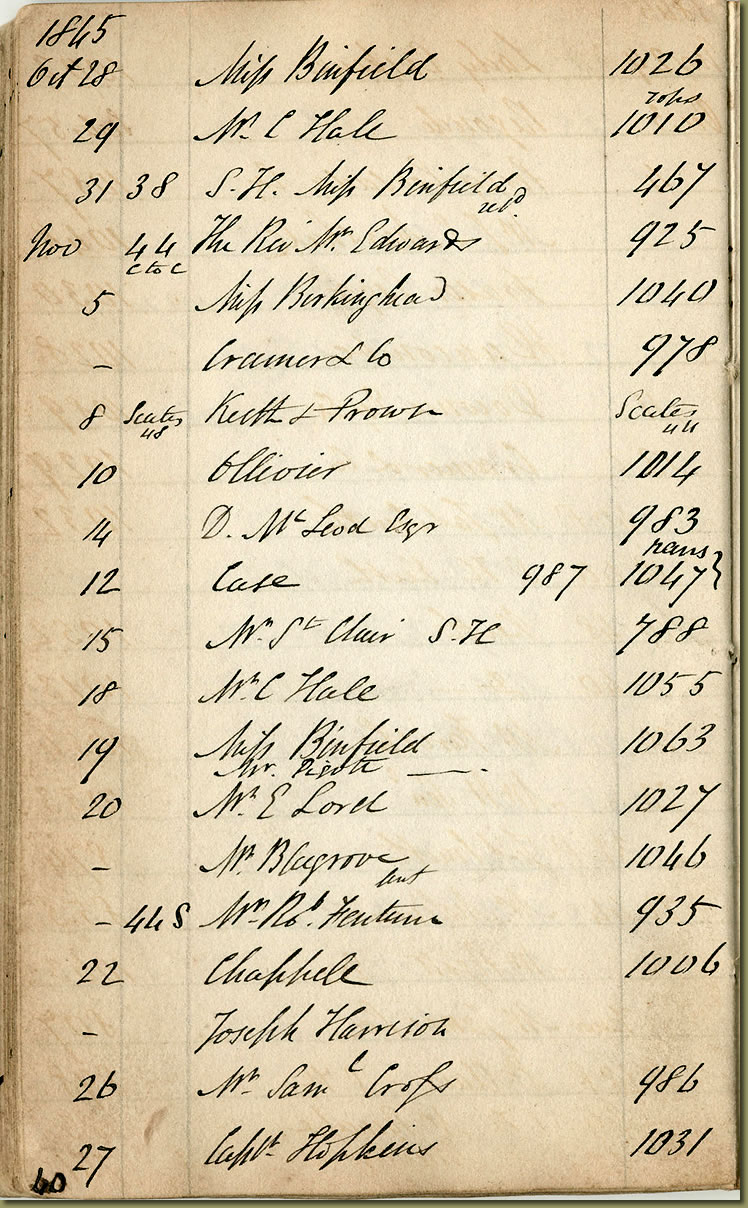 1845
Oct 28 Miss Binfield 1026
29 Mr. C Hale 1010
31 38 S.H. Miss Binfield 467
retd.
Nov 44 The Rev Mr. Edwards 925
C to C
5 Miss Birkinghead 1040
- Cramer & Co 978
8 Scates Keith & Prowse Scates
48
10 Ollivier 1014
14 D. McLeod Esqr 983
12 Case 987 1047}
15 Mr. St. Clair S.H 788
18 Mr. C Hale 1055
19 Miss Binfield 1063
Mr. Pigott —
20 Mr. E Lord 1027
- Mr. Blagrove 1046
- 44 S Mr. Rob. Fentum 935
22 Chappell 1006
- Joseph Harrison
26 Mr. Saml Cross 986
27 Captn. Hopkins 1031
60